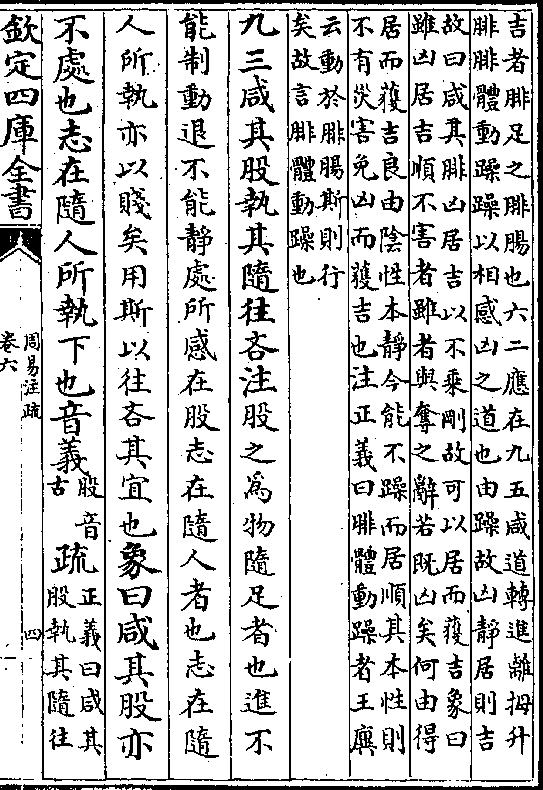 吉者腓足之腓腸也六二應在九五咸道轉進離拇升
腓腓體動躁躁以相感凶之道也由躁故凶靜居則吉
故曰咸其腓凶居吉以不乘剛故可以居而獲吉象曰
雖凶居吉順不害者雖者與奪之辭若既凶矣何由得
居而獲吉良由陰性本靜今能不躁而居順其本性則
不有災害免凶而獲吉也注正義曰腓體動躁者王廙
云動於腓腸斯則行
矣故言腓體動躁也
九三咸其股執其隨往吝注股之為物隨足者也進不
能制動退不能靜處所感在股志在隨人者也志在隨
人所執亦以賤矣用斯以往吝其宜也象曰咸其股亦
不處也志在隨人所執下也音義股音古疏正義曰咸其股執其隨往
欽定四庫全書
周易注疏
卷六
四